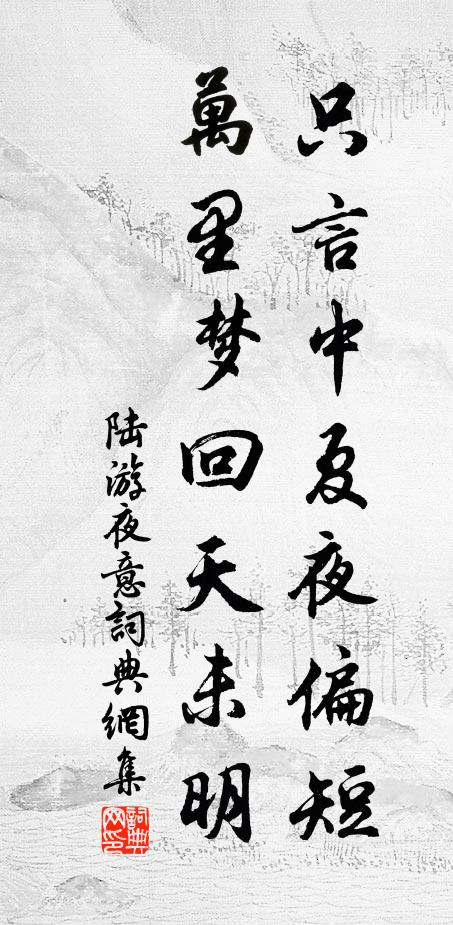 只言中夏夜偏短
萬里梦回天未明
陆游夜意詞典網集
詞典網印